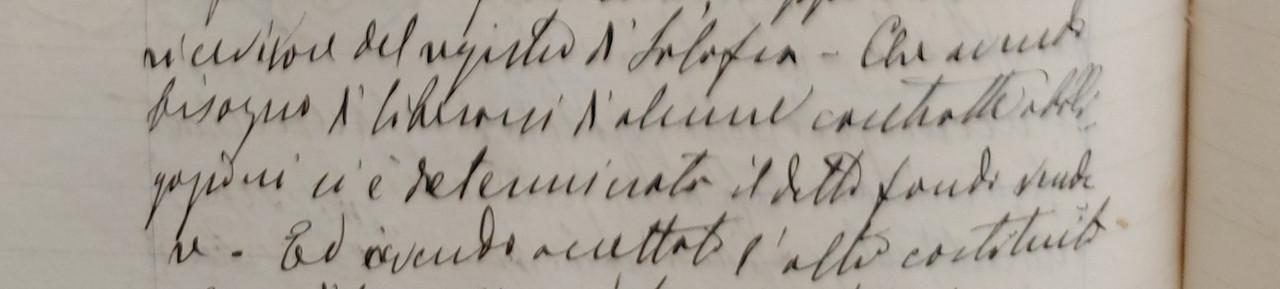 ricevitore del registro di Solofra - Che avendo
bisogno di liberarsi d'alcune contratte obbli-
gazioni si è determinato il detto fondo vende
re - Ed avendo accettato l'altro costituito